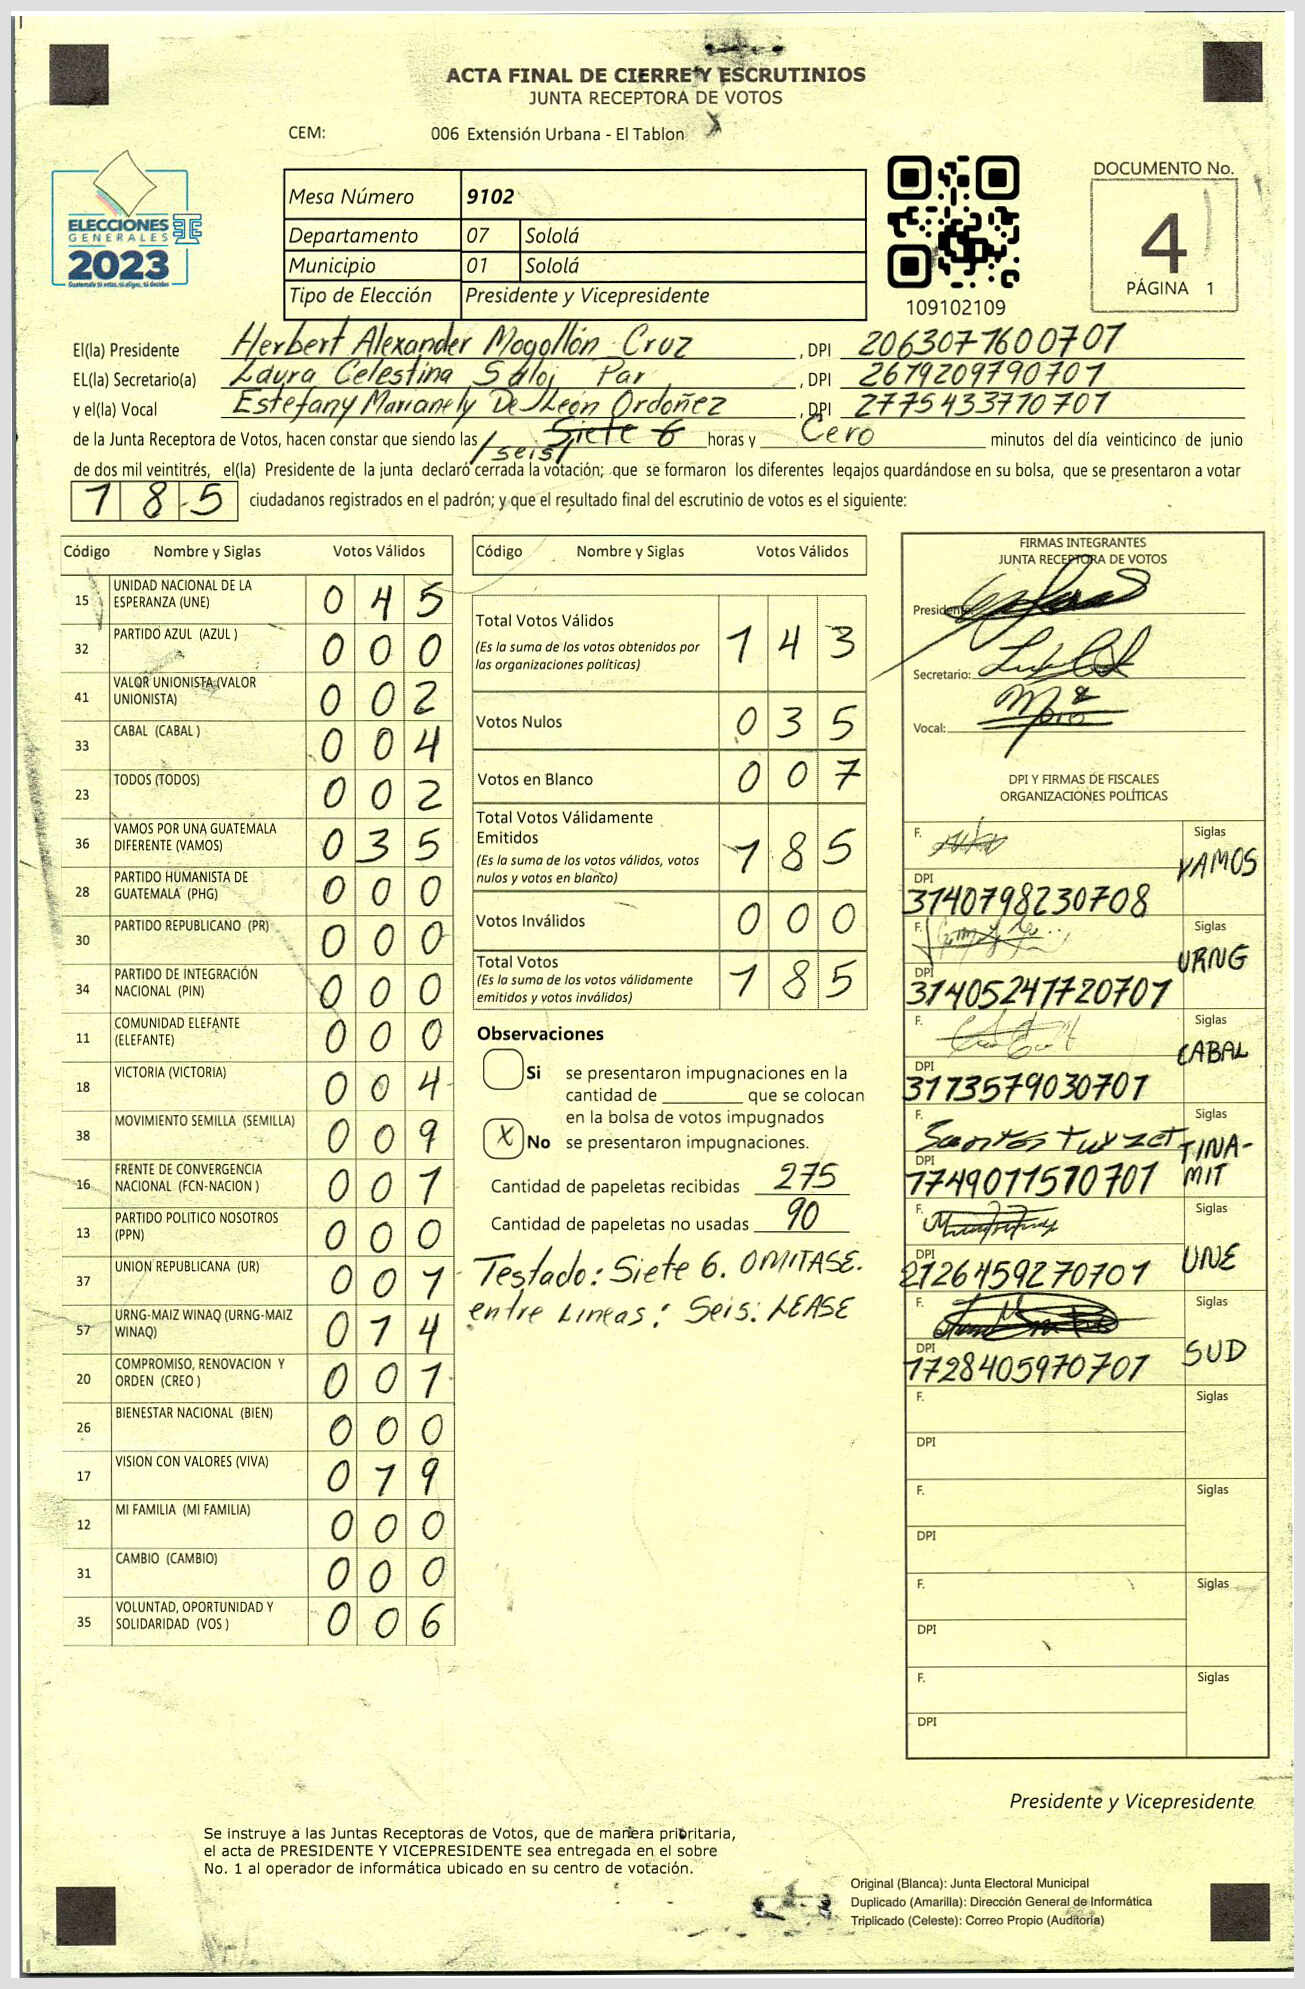 ACTA FINAL DE CIERRE Y ESCRUTINIOS
JUNTA RECEPTORA DE VOTOS
CEM: 006 Extensión Urbana - El Tablon
ELECCIONES
GENERALES
2023
Guatemala tú votas, tú eliges, tú decides
Mesa Número 9102
Departamento 07 Sololá
Municipio 01 Sololá
Tipo de Elección Presidente y Vicepresidente
109102109
DOCUMENTO No.
4
PÁGINA 1
El(la) Presidente Herbert Alexander Mogollón Cruz, DPI 2063077600701
EL(la) Secretario(a) Laura Celestina Saloj Par, DPI 2619209790701
y el(la) Vocal Estefany Marianely De León Ordoñez, DPI 2775433710701
de la Junta Receptora de Votos, hacen constar que siendo las Siete 6 /seis/ horas y Cero minutos del día veinticinco de junio
de dos mil veintitrés, el(la) Presidente de la junta declaró cerrada la votación; que se formaron los diferentes legajos quardándose en su bolsa, que se presentaron a votar
185 ciudadanos registrados en el padrón; y que el resultado final del escrutinio de votos es el siguiente:
Código Nombre y Siglas Votos Válidos
15 UNIDAD NACIONAL DE LA ESPERANZA (UNE) 045
32 PARTIDO AZUL (AZUL ) 000
41 VALOR UNIONISTA (VALOR UNIONISTA) 002
33 CABAL (CABAL ) 004
23 TODOS (TODOS) 002
36 VAMOS POR UNA GUATEMALA DIFERENTE (VAMOS) 035
28 PARTIDO HUMANISTA DE GUATEMALA (PHG) 000
30 PARTIDO REPUBLICANO (PR) 000
34 PARTIDO DE INTEGRACIÓN NACIONAL (PIN) 000
11 COMUNIDAD ELEFANTE (ELEFANTE) 000
18 VICTORIA (VICTORIA) 004
38 MOVIMIENTO SEMILLA (SEMILLA) 009
16 FRENTE DE CONVERGENCIA NACIONAL (FCN-NACION ) 001
13 PARTIDO POLITICO NOSOTROS (PPN) 000
37 UNION REPUBLICANA (UR) 001
57 URNG-MAIZ WINAQ (URNG-MAIZ WINAQ) 014
20 COMPROMISO, RENOVACION Y ORDEN (CREO ) 001
26 BIENESTAR NACIONAL (BIEN) 000
17 VISION CON VALORES (VIVA) 019
12 MI FAMILIA (MI FAMILIA) 000
31 CAMBIO (CAMBIO) 000
35 VOLUNTAD, OPORTUNIDAD Y SOLIDARIDAD (VOS ) 006
Código Nombre y Siglas Votos Válidos
Total Votos Válidos 143
(Es la suma de los votos obtenidos por
las organizaciones políticas)
Votos Nulos 035
Votos en Blanco 007
Total Votos Válidamente
Emitidos 185
(Es la suma de los votos válidos, votos
nulos y votos en blanco)
Votos Inválidos 000
Total Votos 185
(Es la suma de los votos válidamente
emitidos y votos inválidos)
Observaciones
Si se presentaron impugnaciones en la
cantidad de ________ que se colocan
en la bolsa de votos impugnados
X No se presentaron impugnaciones.
Cantidad de papeletas recibidas 275
Cantidad de papeletas no usadas 90
Testado: Siete 6. OMITASE.
entre Lineas: Seis: LEASE
FIRMAS INTEGRANTES
JUNTA RECEPTORA DE VOTOS
Presidente:
Secretario:
Vocal:
DPI Y FIRMAS DE FISCALES
ORGANIZACIONES POLÍTICAS
F. Siglas VAMOS
DPI 3140798230708
F. Siglas URNG
DPI 31405241720701
F. Siglas CABAL
DPI 3173579030701
F. Santos Tuyzet Siglas TINA-
MIT
DPI 1749011570701
F. Siglas UNE
DPI 2126459270701
F. Siglas SUD
DPI 1728405970701
F. Siglas
DPI
F. Siglas
DPI
F. Siglas
DPI
F. Siglas
DPI
Presidente y Vicepresidente
Se instruye a las Juntas Receptoras de Votos, que de manera prioritaria,
el acta de PRESIDENTE Y VICEPRESIDENTE sea entregada en el sobre
No. 1 al operador de informática ubicado en su centro de votación.
Original (Blanca): Junta Electoral Municipal
Duplicado (Amarilla): Dirección General de Informática
Triplicado (Celeste): Correo Propio (Auditoría)